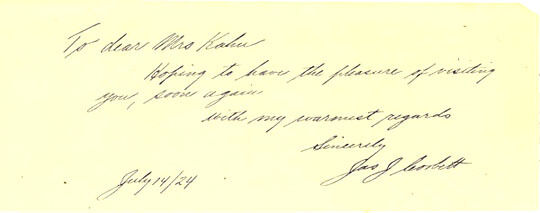 To dear Mrs Kahn
Hoping to have the pleasure of visiting
you, soon again
with my warmest regards
Sincerely
Jas J Corbett
July 14/24